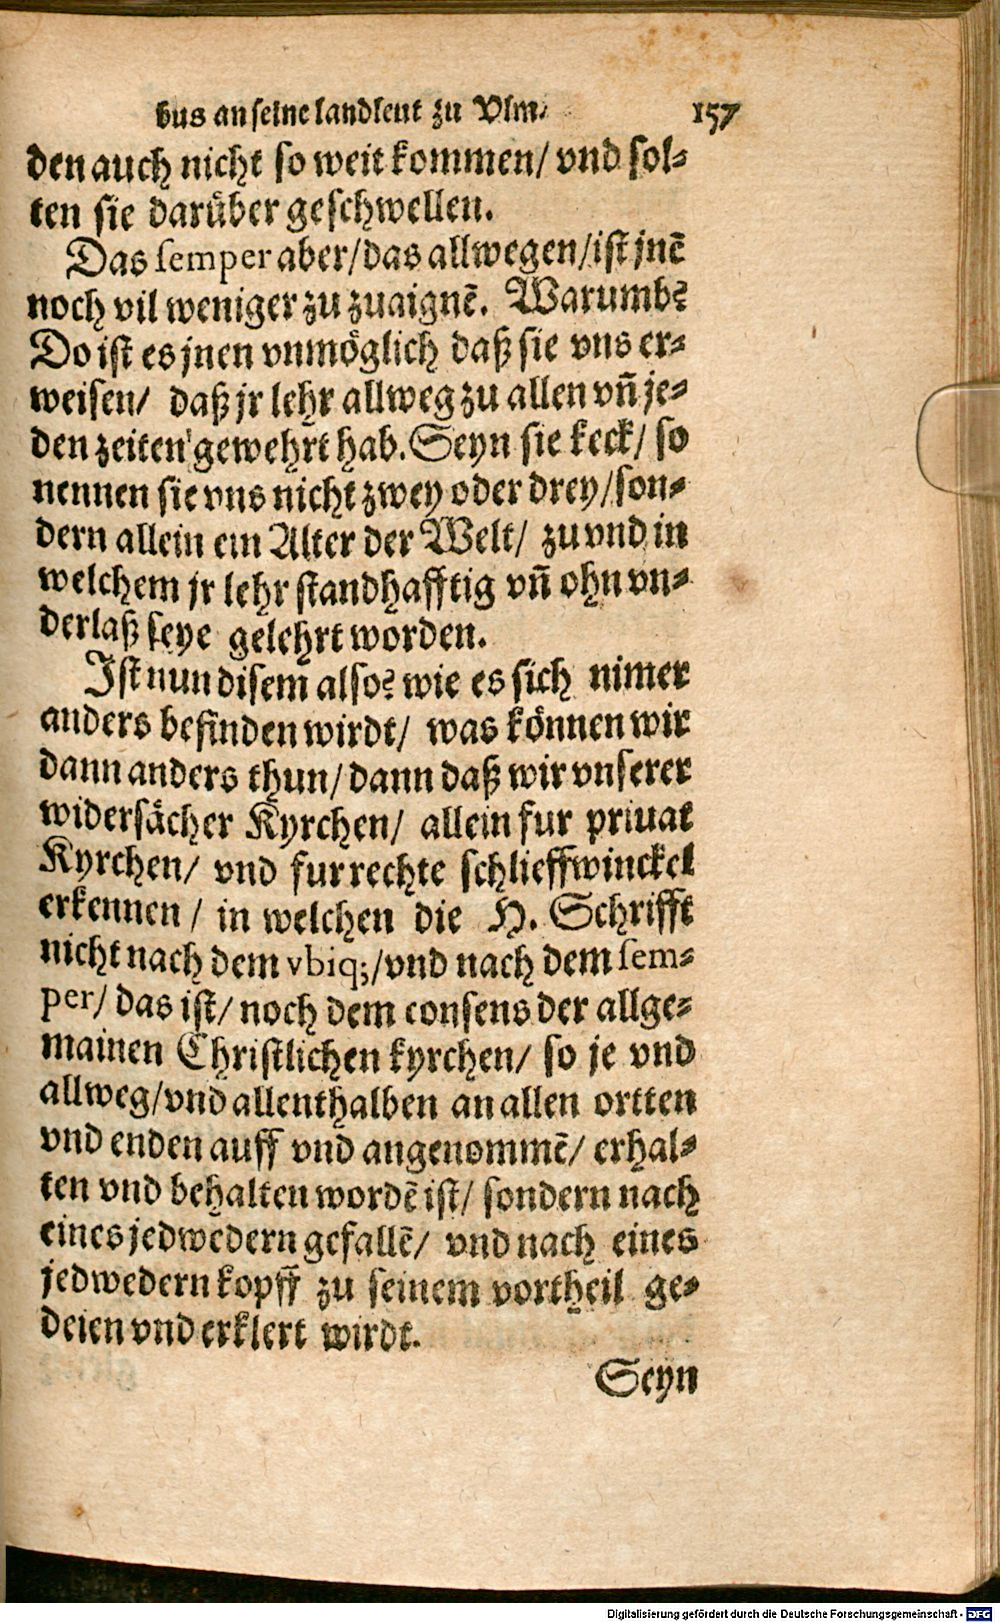 bus an seine landleut zu Vlm. 157
den auch nicht so weit kommen/ vnd sol⸗
ten sie darüber geschwellen.
Das semper aber/das allwegen/ist jnē
noch vil weniger zu zuaignē. Warumb?
Do ist es jnen vnmöglich daß sie vns er⸗
weisen/ daß jr lehr allweg zu allen vn̄ je⸗
den zeiten gewehrt hab. Seyn sie keck/ so
nennen sie vns nicht zwey oder drey/son⸗
dern allein ein Alter der Welt/ zu vnd in
welchem jr lehr standhafftig vn̄ ohn vn⸗
derlaß seye gelehrt worden.
Ist nun disem also? wie es sich nimer
anders befinden wirdt/ was können wir
dann anders thun/dann daß wir vnserer
widersächer Kyrchen/ allein fur priuat
Kyrchen/ vnd fur rechte schlieffwinckel
erkennen/ in welchen die H. Schrifft
nicht nach dem vbiq;/vnd nach dem sem⸗
per/ das ist/ noch dem consens der allge⸗
mainen Christlichen kyrchen/ so je vnd
allweg/vnd allenthalben an allen ortten
vnd enden auff vnd angenommē/ erhal⸗
ten vnd behalten wordē ist/ sondern nach
eines jedwedern gefallē/ vnd nach eines
jedwedern kopff zu seinem vortheil ge⸗
deien vnd erklert wirdt.
Seyn
Digitalisierung gefördert durch die Deutsche Forschungsgemeinschaft - DFG